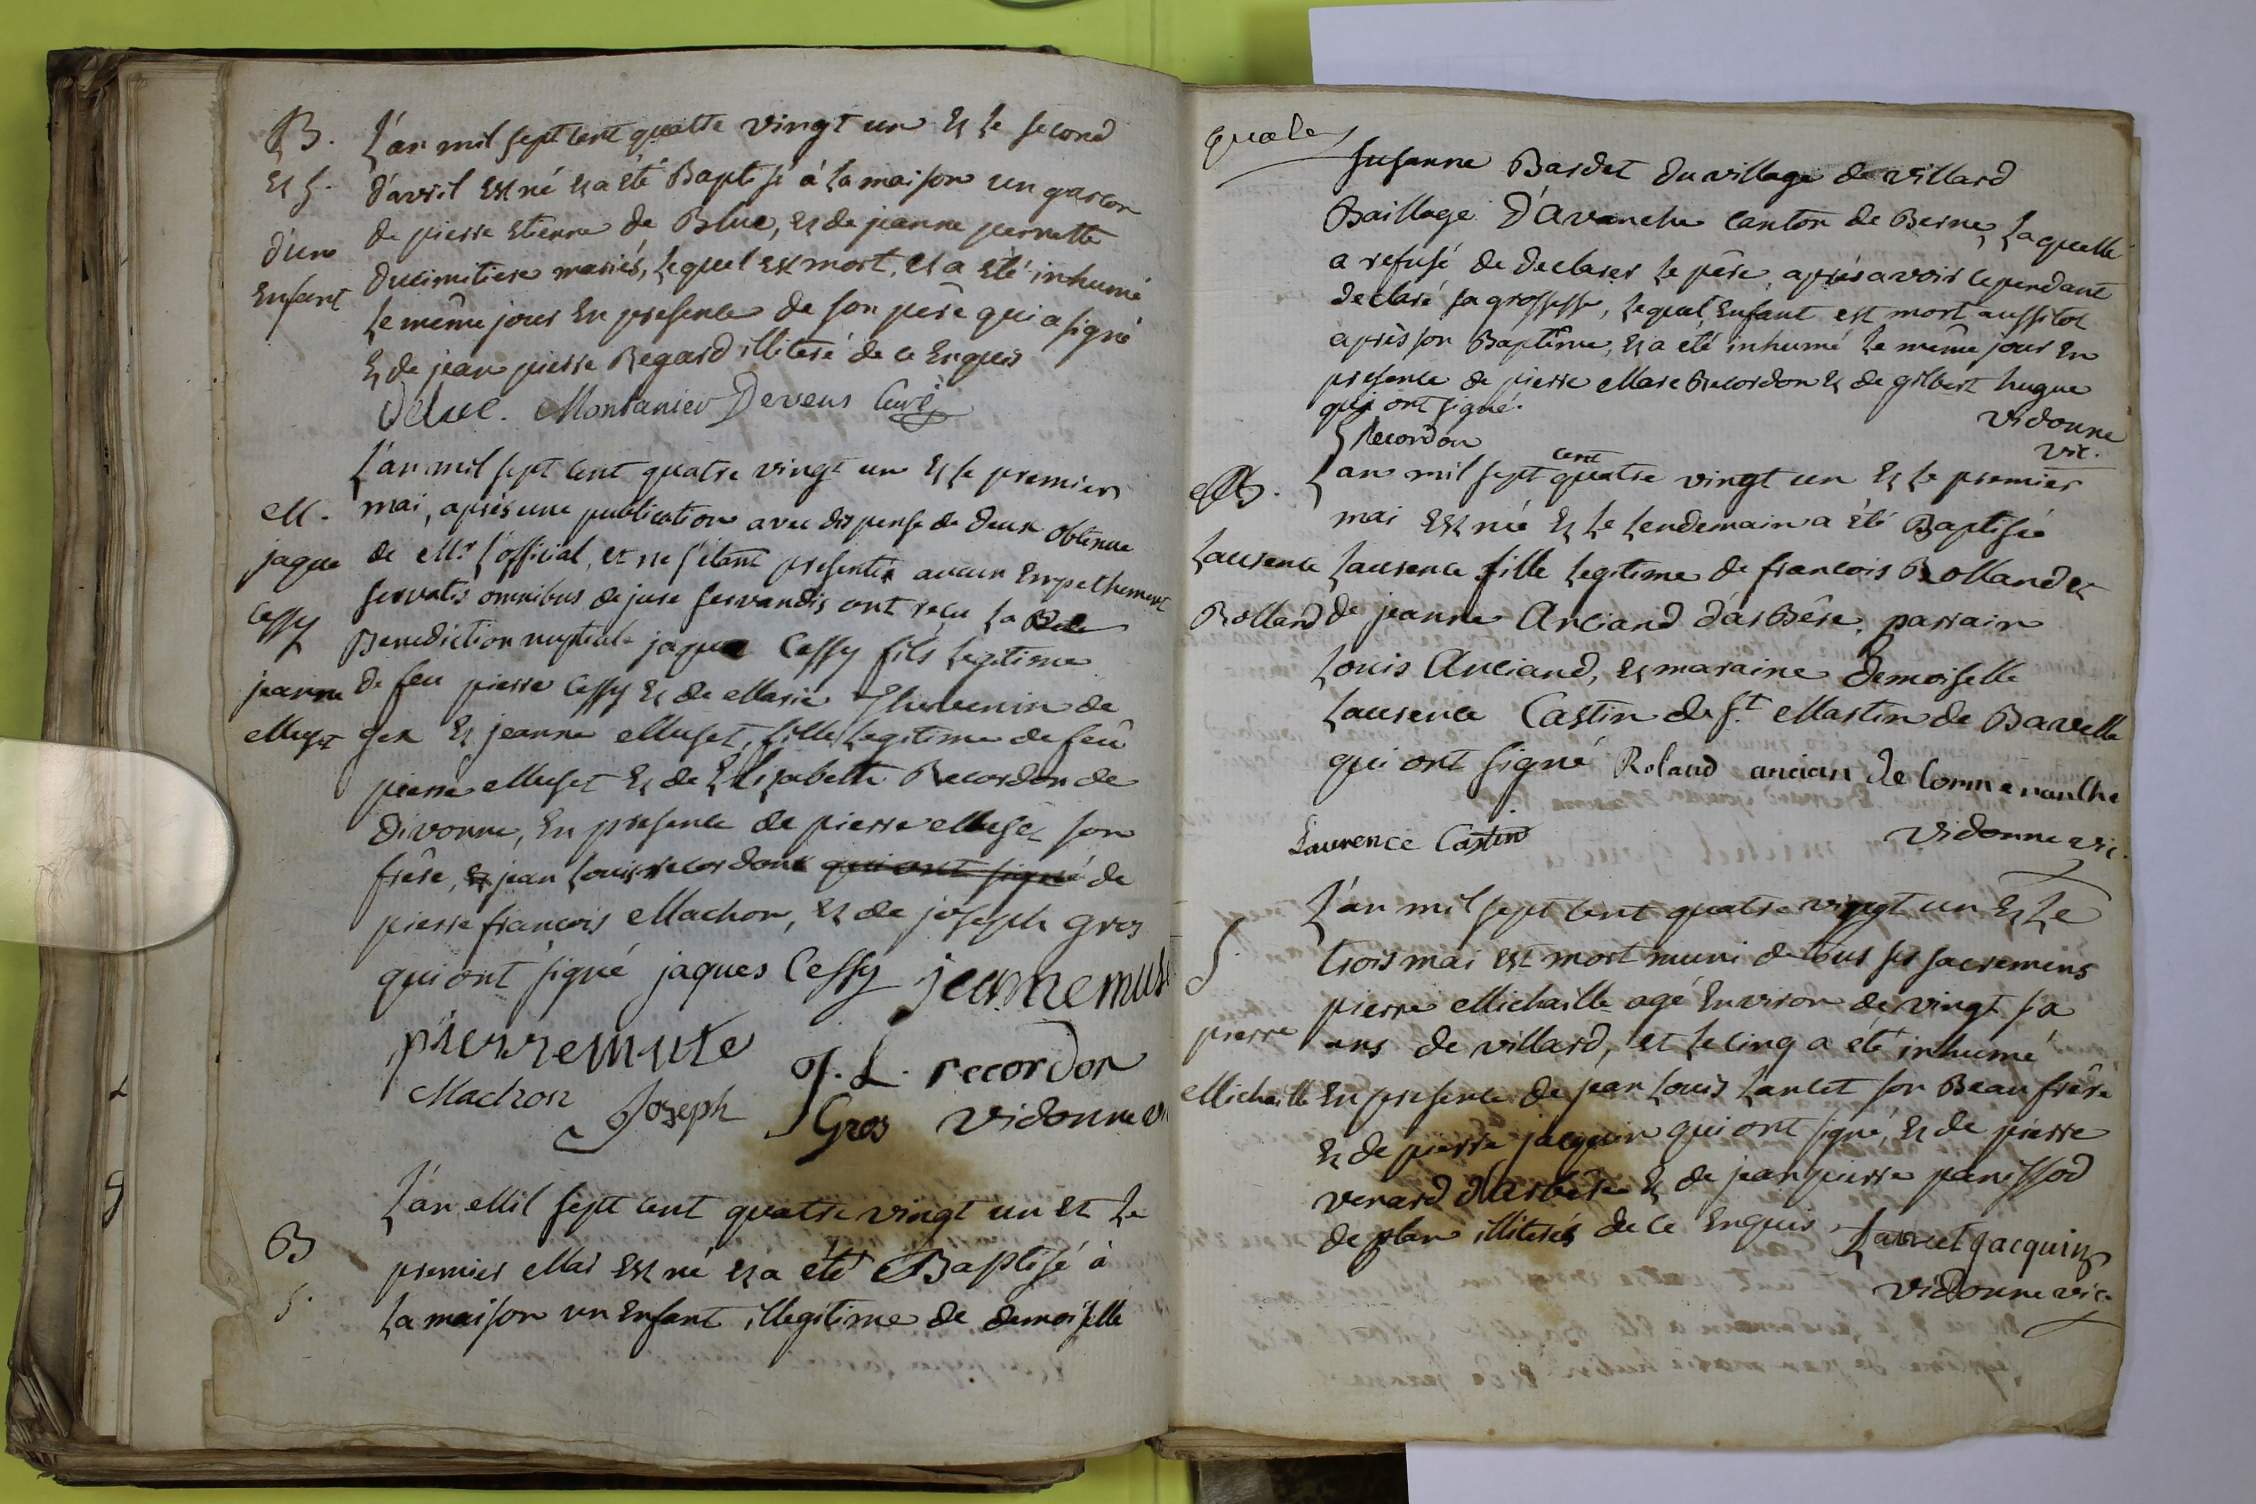 B.
Et S.
d'un
Enfant
L'an mil sept cent quatre vingt un Et le second
d'avril Est né et a été Baptisé à la maison un garcon
de pierre Etienne de Bluë, et de jeanne pernette
ducimitiere mariés, lequel est mort, et a été inhumé
le même jour En presence de son père qui a signé
Et de jean pierre Regard illiteré de ce Enquis
Deluc. Montanier Devens Curé
M.
jaque
Cessy
jeanne
Muset
L'an mil sept cent quatre vingt un Et le premier
mai, après une publication avec dispense de deux obtenue
de Mr. l'official, et ne s'étant presenté aucun Empechement
servatis omnibus de jure servandis ont reçu la
Benediction nuptiale jaque Cessy fils legitime
de feu pierre Cessy Et de Marie Thevenin de
gex Et jeanne Muset, fille legitime de feû
pierre Muset Et de Elisabette Recordon de
divonne, En presence de pierre Muset son
frêre, et jean Louis recordon qui ont signé de
pierre francois Machon, Et de joseph gros
qui ont signé jaques Cessy jeanne mus
pierre mute
J. L. recordon
Machon Joseph Gros Vidonne vi
B
S.
L'an Mil sept cent quatre vingt un et le
premier Mai Est né et a été Baptisé à
la maison un Enfant illegitime de demoiselle
Susanne Bardet du village de villard
Baillage d'Avanche canton de Berne, laquelle
a refusé de declarer le père, après avoir cependant
declaré sa grossesse, lequel Enfant est mort aussitot
après son Baptême, Et a été inhumé le même jour En
presence de pierre Marc Recordon Et de gilbert hugue
qui ont signé.
Vidonne
vic.
Recordon
B.
Laurence
Rolland
L'an mil sept cent quatre vingt un Et le premier
mai Est née Et le lendemain a été Baptisée
Laurence fille legitime de francois Rolland et
de jeanne Anciand d'arbêre, parrain
Louis Anciand, et maraine demoiselle
Laurence Castin de St. Martin de Bavelle
qui ont signé Roland ancian de
Laurence Castin
Vidonne vic.
S.
pierre
Michaille
L'an mil sept cent quatre vingt un Et le
trois mai est mort muni de tous ses sacremens
pierre Michaille agé Environ de vingt six
ans de villard, et le cinq a été inhumé
En presence de jean Louis Lancet son Beau frêre
Et de pierre jacquin qui ont signé, Et de pierre
venard d'arbêre Et de jean pierre panissod
de plan illiterés de ce Enquis Lancet jacquin
Vidonne vic.